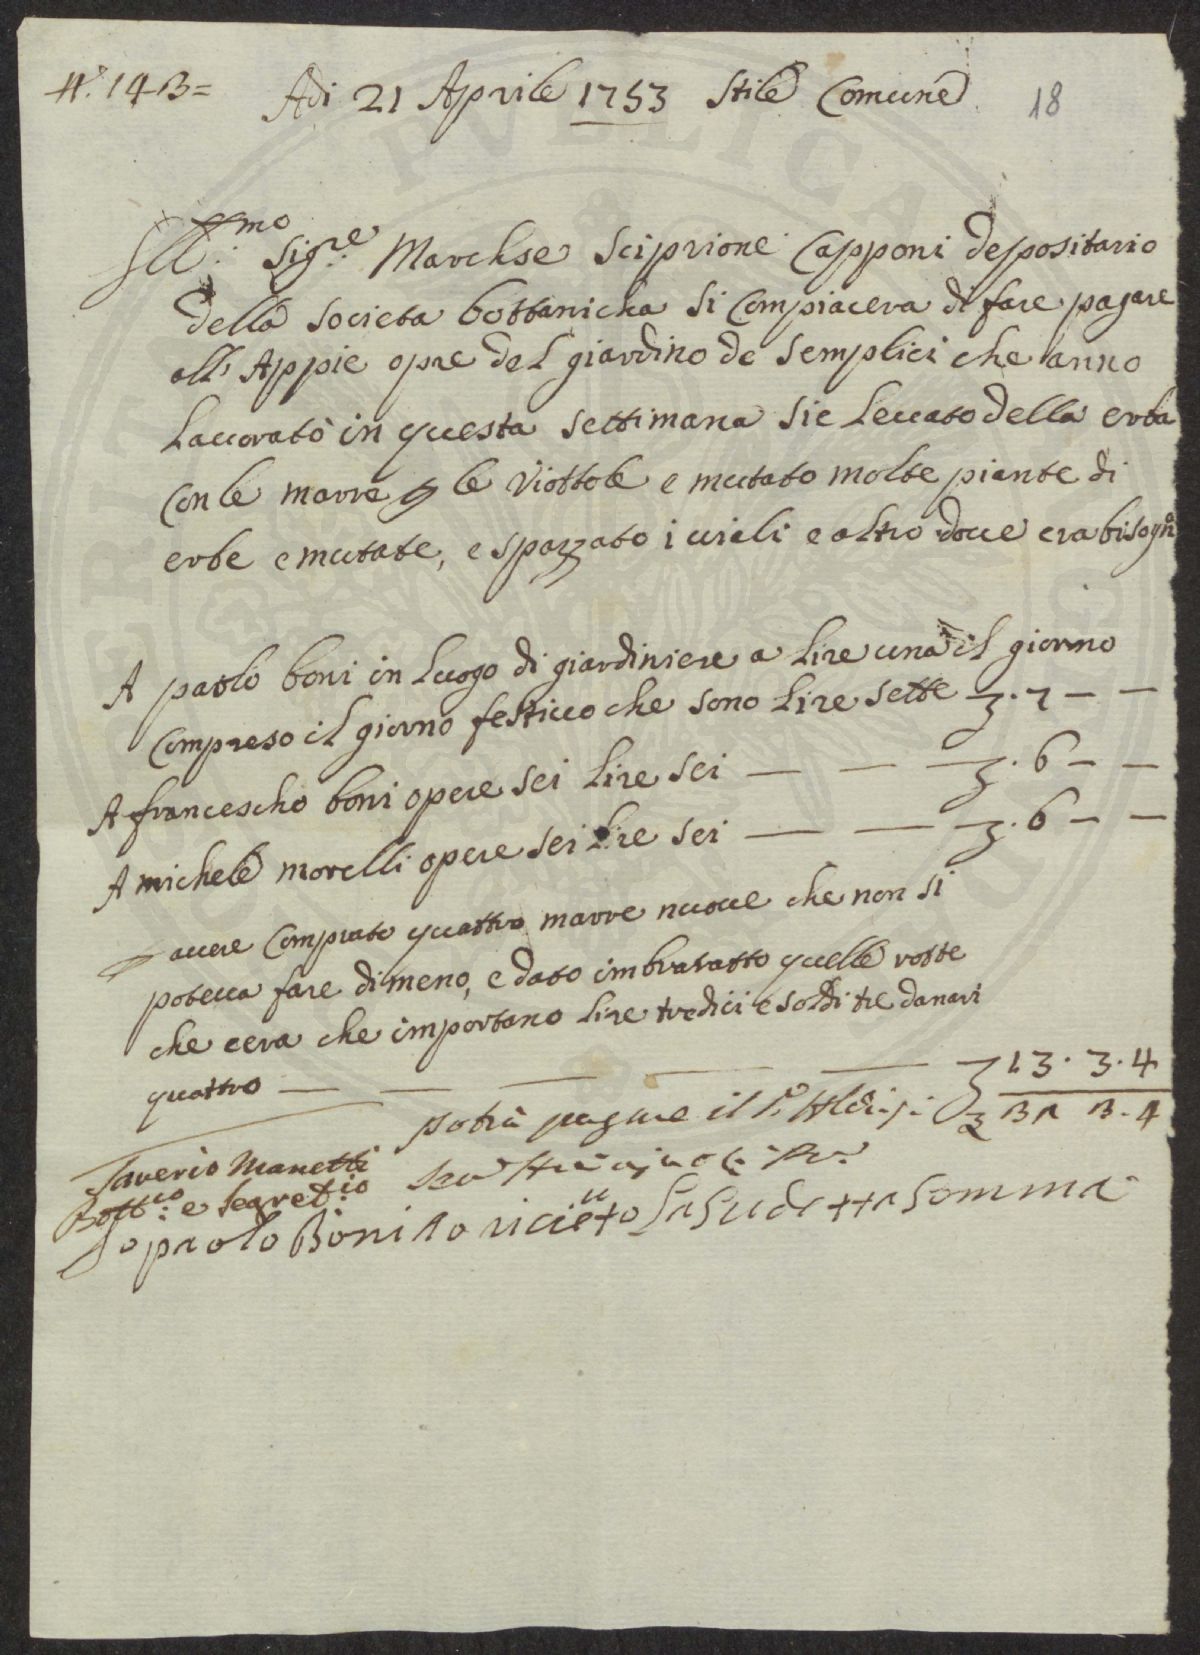 N.º 143=
Adi 21 Aprile 1753 Stile Comune
18
Ill.mo Sig.re Marchse Sciprione Capponi depositario
della societa bottanicha si Compiacera di fare pagare
all' Appie opre del giardino de Semplici che anno
Lauorato in questa settimana sie Leuato della erba
Con le marre p le Viottole e mutato molte piante di
erbe e mutate, e spazzato i uiali e altro doue era bisogno
A paolo boni in Luogo di giardiniere a Lire una il giorno
Compreso il giorno festiuo che sono Lire sette — ʒ. 7 — —
A francescho boni opere sei Lire sei — — — ʒ. 6 — —
A michele morelli opere sei Lire sei — — — ʒ. 6 — —
p auere Comprato quattro marre nuoue che non si
poteua fare di meno, e dato imbaratto quelle rotte
che cera che importano Lire tredici e soldi tre danari
quattro — — — — — ʒ 13. 3. 4
potrà pagare il ʒ 32 3. 4
Saverio Manetti
Bott.co e Segret.io
Io paolo Boni o riceuto La Sudetta Somma
PVBLICA